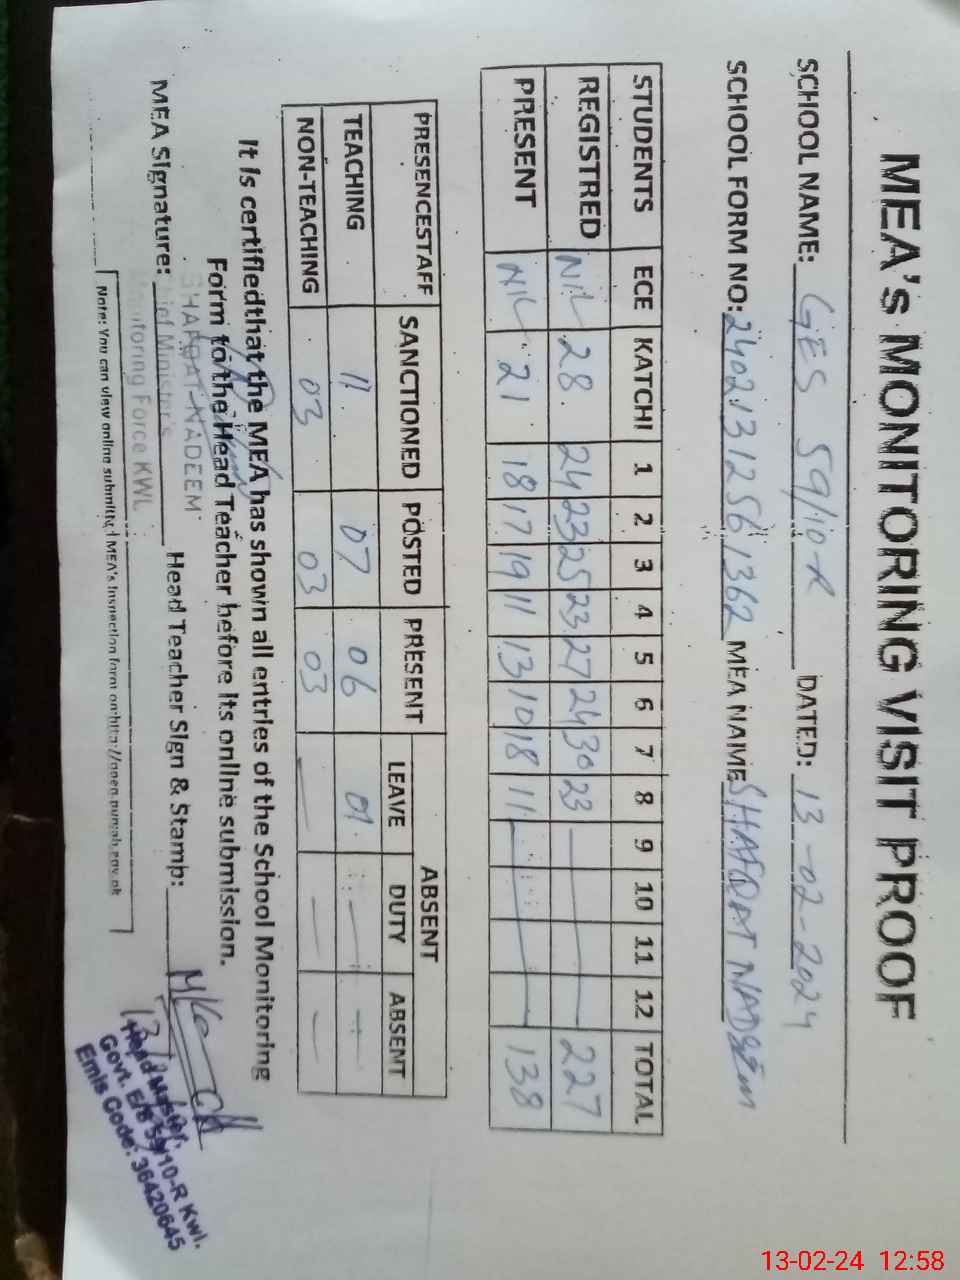 MEA's MONITORING VISIT PROOF
SCHOOL NAME: GES 59/10-R DATED: 13-02-2024
SCHOOL FORM NO: 2402131256 1362 MEA NAME SHAFQAT NADEEM
STUDENTS ECE KATCHI 1 2 3 4 5 6 7 8 9 10 11 12 TOTAL
REGISTRED NIL 28 24 23 25 23 27 24 30 23 227
PRESENT NIL 21 18 17 19 11 13 10 18 11 138
PRESENCESTAFF SANCTIONED POSTED PRESENT ABSENT
LEAVE DUTY ABSENT
TEACHING 11 07 06 01
NON-TEACHING 03 03 03
It is certifiedthat the MEA has shown all entries of the School Monitoring
Form to the Head Teacher before its online submission.
SHAFQAT NADEEM
Chief Minister's
Monitoring Force KWL
MEA Signature: Head Teacher Sign & Stamb:
Head Master,
Govt. E/S 59/10-R Kwl.
Emis Code: 36420645
Note: You can view online submitted MEA's Inspection form on:http://open.punjab.gov.pk
13-02-24 12:58